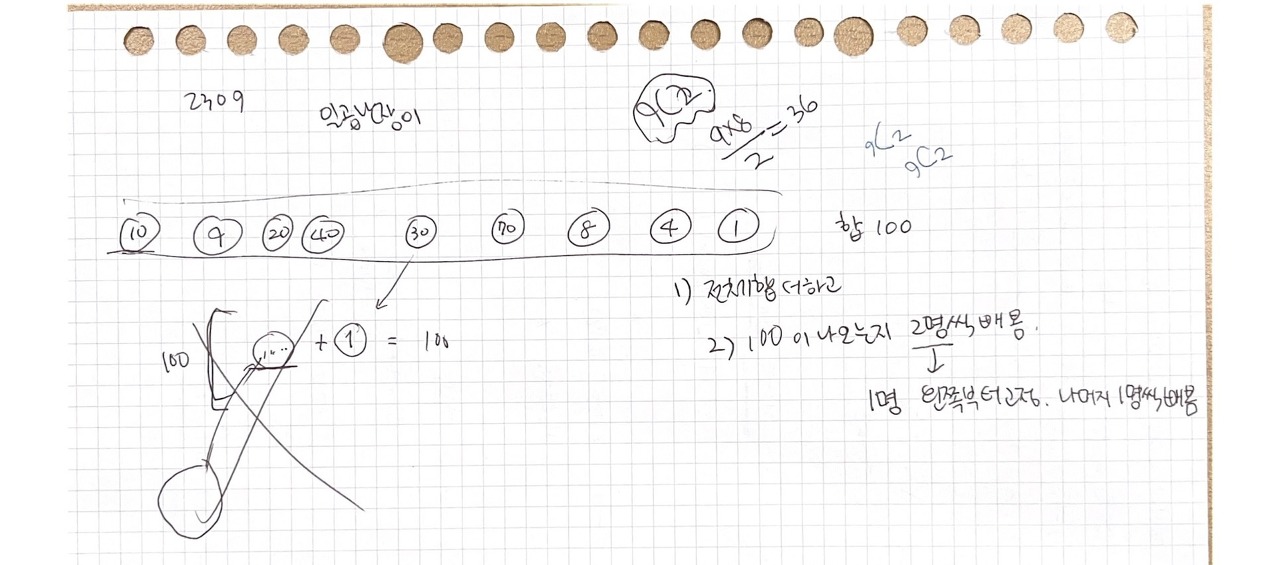 2309
일곱난장이
9C2
9x8/2 = 36
9C2
9C2
10 9 20 40 30 70 8 4 1
합 100
1) 전체합 더하고
2) 100이 나오는지 2명씩 빼봄.
1명 왼쪽부터 고정. 나머지 1명씩 빼봄
100 [ .... + 1 = 100